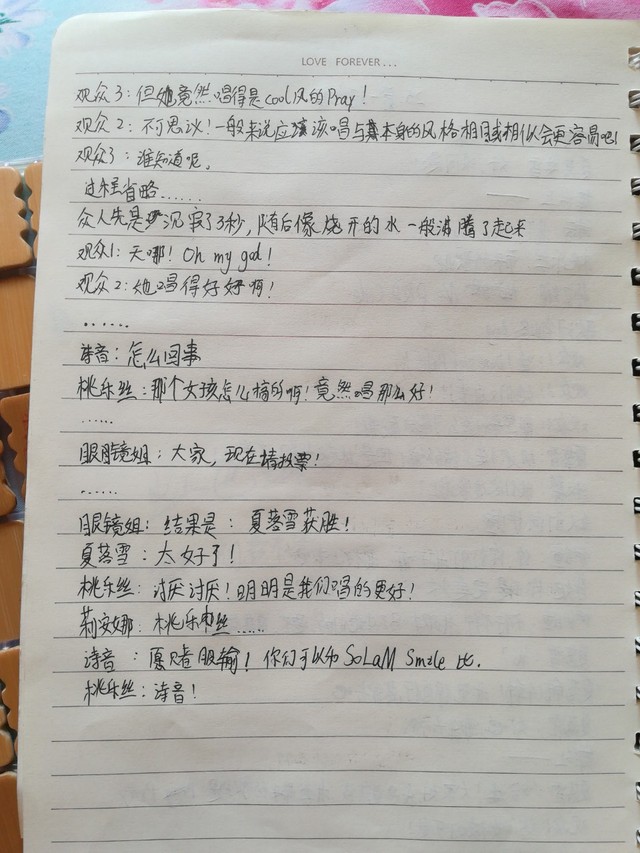 LOVE FOREVER...
观众3：但她竟然唱得是cool风的Pray！
观众2：不可思议！一般来说应该唱与本身的风格相同或相似会更容易吧！
观众3：谁知道呢。
过程省略……
众人先是沉寂了3秒，随后像烧开的水一般沸腾了起来
观众1：天哪！Oh my god！
观众2：她唱得好好啊！
……
诗音：怎么回事
桃乐丝：那个女孩怎么搞的啊！竟然唱那么好！
……
眼镜姐：大家，现在请投票！
……
眼镜姐：结果是：夏落雪获胜！
夏落雪：太好了！
桃乐丝：讨厌讨厌！明明是我们唱的更好！
莉安娜：桃乐丝……
诗音：愿赌服输！你们可以和SoLaM Smile比.
桃乐丝：诗音！